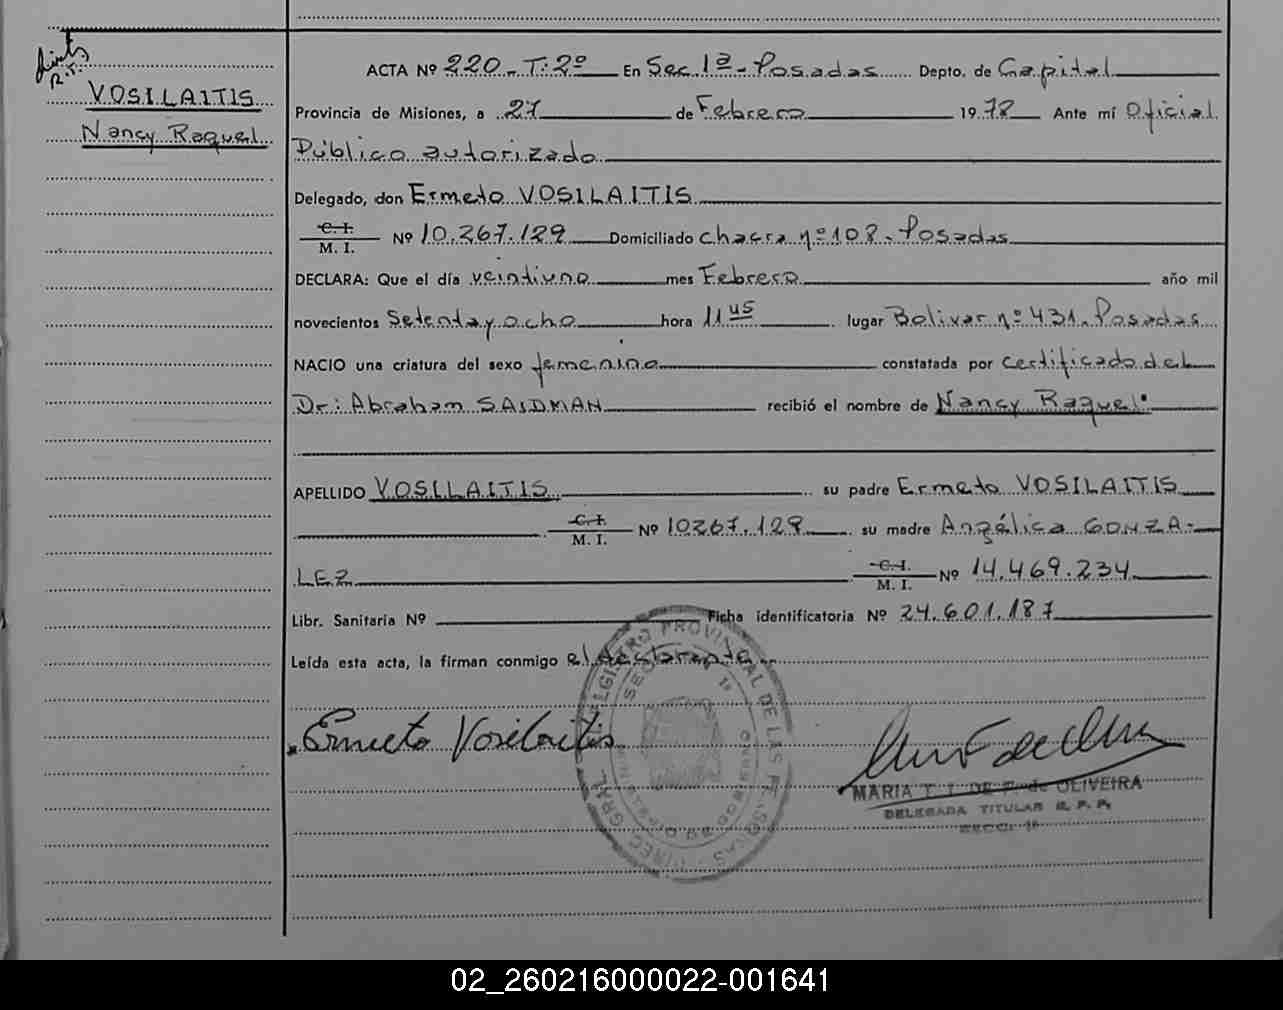 VOSILAITIS
Nancy Raquel
ACTA Nº 220 - T: 2º En Sec. 1ª - Posadas Depto. de Capital
Provincia de Misiones, a 27 de Febrero 1978 Ante mí Oficial
Público autorizado
Delegado, don Ermeto VOSILAITIS
C. I.
M. I. Nº 10.267.129 Domiciliado chacra nº 108 - Posadas
DECLARA: Que el día veintiuno mes Febrero año mil
novecientos Setenta y ocho hora 11 45 lugar Bolivar nº 431. Posadas
NACIO una criatura del sexo femenino constatada por certificado del
Dr: Abraham SAIDMAN recibió el nombre de Nancy Raquel
APELLIDO VOSILAITIS su padre Ermeto VOSILAITIS
C. I.
M. I. Nº 10267.129 su madre Angélica GONZA-
LEZ C. I.
M. I. Nº 14.469.234
Libr. Sanitaria Nº Ficha identificatoria Nº 24.601.187
Leída esta acta, la firman conmigo el declarante
Ermeto Vosilaitis
DIREC. GRAL. REGISTRO PROVINCIAL DE LAS PERSONAS
MARIA T. I. DE F. de OLIVEIRA
DELEGADA TITULAR R. P. P.
SECC. 1ª
02_260216000022-001641